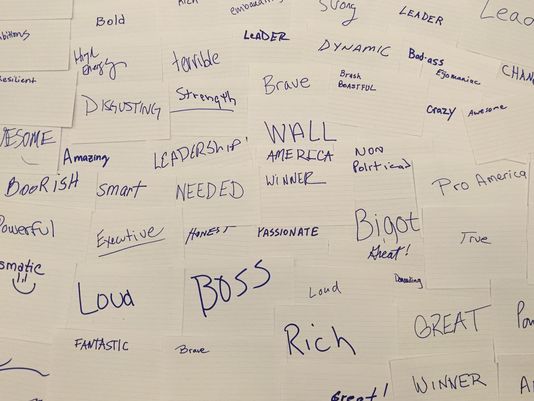 Rich
Strong
Lead
Bold
LEADER
LEADER
High
energy
terrible
DYNAMIC
Bad-ass
Egomaniac
CHAN
esilient
DISGUSTING
Strength
Brave
Brash
BOASTFUL
Crazy
Awesome
WESOME
WALL
Amazing
LEADERSHIP
AMERICA
NON
Political
BooRISH
smart
NEEDED
WINNER
Pro America
Powerful
Executive
HONEST
PASSIONATE
Bigot
Great!
True
smatic
Loud
BOSS
Loud
Demanding
FANTASTIC
Brave
Rich
GREAT
Pow
Great!
WINNER
A